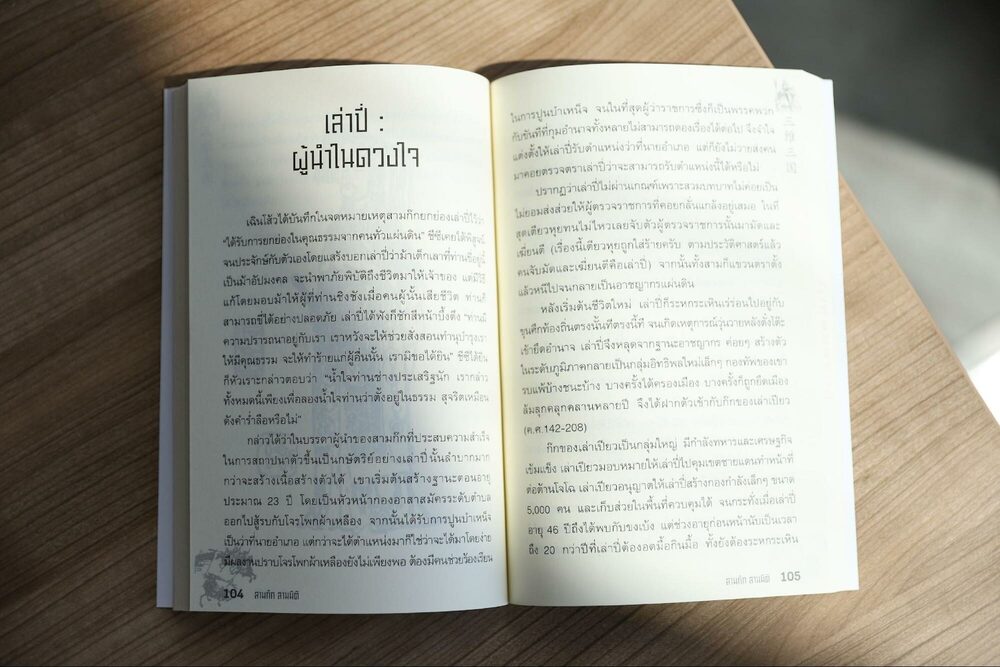 เล่าปี่ :
ผู้นำในดวงใจ
เฉินโส้วได้บันทึกในจดหมายเหตุสามก๊กยกย่องเล่าปี่ไว้ว่า
“ได้รับการยกย่องในคุณธรรมจากคนทั่วแผ่นดิน” ชีซีเคยได้พิสูจน์
จนประจักษ์กับตัวเองโดยแสร้งบอกเล่าปี่ว่าม้าเต็กเลาที่ท่านขี่อยู่นี้
เป็นม้าอัปมงคล จะนำพาภัยพิบัติถึงชีวิตมาให้เจ้าของ แต่มีวิธี
แก้โดยมอบม้าให้ผู้ที่ท่านชิงชังเมื่อคนผู้นั้นเสียชีวิต ท่านก็
สามารถขี่ได้อย่างปลอดภัย เล่าปี่ได้ฟังก็ชักสีหน้าบึ้งตึง “ท่านมี
ความปรารถนาอยู่กับเรา เราหวังจะให้ช่วยสั่งสอนทำนุบำรุงเรา
ให้มีคุณธรรม จะให้ทำร้ายแก่ผู้อื่นนั้น เรามิขอได้ยิน” ชีซีได้ยิน
ก็หัวเราะกล่าวตอบว่า “น้ำใจท่านช่างประเสริฐนัก เรากล่าว
ทั้งหมดนี้เพียงเพื่อลองน้ำใจท่านว่าตั้งอยู่ในธรรม สุจริตเหมือน
ดังคำร่ำลือหรือไม่”
กล่าวได้ว่าในบรรดาผู้นำของสามก๊กที่ประสบความสำเร็จ
ในการสถาปนาตัวขึ้นเป็นกษัตริย์อย่างเล่าปี่นั้นลำบากมาก
กว่าจะสร้างเนื้อสร้างตัวได้ เขาเริ่มต้นสร้างฐานะตอนอายุ
ประมาณ 23 ปี โดยเป็นหัวหน้ากองอาสาสมัครระดับตำบล
ออกไปสู้รบกับโจรโพกผ้าเหลือง จากนั้นได้รับการปูนบำเหน็จ
เป็นว่าที่นายอำเภอ แต่กว่าจะได้ตำแหน่งมาก็ใช่ว่าจะได้มาโดยง่าย
มีผลงานปราบโจรโพกผ้าเหลืองยังไม่เพียงพอ ต้องมีคนช่วยร้องเรียน
104 สามก๊ก สามมิติ
ในการปูนบำเหน็จ จนในที่สุดผู้ว่าราชการซึ่งก็เป็นพรรคพวก
กับขันทีที่กุมอำนาจทั้งหลายไม่สามารถดองเรื่องได้ต่อไป จึงจำใจ
แต่งตั้งให้เล่าปี่รับตำแหน่งว่าที่นายอำเภอ แต่ก็ยังไม่วายส่งคน
มาคอยตรวจตราเล่าปี่ว่าจะสามารถรับตำแหน่งนี้ได้หรือไม่
ปรากฏว่าเล่าปี่ไม่ผ่านเกณฑ์เพราะสวมบทบาทไม่ค่อยเป็น
ไม่ยอมส่งส่วยให้ผู้ตรวจราชการที่คอยกลั่นแกล้งอยู่เสมอ ในที่
สุดเตียวหุยทนไม่ไหวเลยจับตัวผู้ตรวจราชการนั้นมามัดและ
เฆี่ยนตี (เรื่องนี้เตียวหุยถูกใส่ร้ายครับ ตามประวัติศาสตร์แล้ว
คนจับมัดและเฆี่ยนตีคือเล่าปี่) จากนั้นทั้งสามก็แขวนตราตั้ง
แล้วหนีไปจนกลายเป็นอาชญากรแผ่นดิน
หลังเริ่มต้นชีวิตใหม่ เล่าปี่ก็ระหกระเหินเร่ร่อนไปอยู่กับ
ขุนศึกท้องถิ่นตรงนั้นทีตรงนี้ที จนเกิดเหตุการณ์วุ่นวายหลังตั๋งโต๊ะ
เข้ายึดอำนาจ เล่าปี่จึงหลุดจากฐานะอาชญากร ค่อยๆ สร้างตัว
ในระดับภูมิภาคกลายเป็นกลุ่มอิทธิพลใหม่เล็กๆ กองทัพของเขา
รบแพ้บ้างชนะบ้าง บางครั้งได้ครองเมือง บางครั้งก็ถูกยึดเมือง
ล้มลุกคลุกคลานหลายปี จึงได้ฝากตัวเข้ากับก๊กของเล่าเปียว
(ค.ศ.142-208)
ก๊กของเล่าเปียวเป็นกลุ่มใหญ่ มีกำลังทหารและเศรษฐกิจ
เข้มแข็ง เล่าเปียวมอบหมายให้เล่าปี่ไปคุมเขตชายแดนทำหน้าที่
ต่อต้านโจโฉ เล่าเปียวอนุญาตให้เล่าปี่สร้างกองกำลังเล็กๆ ขนาด
5,000 คน และเก็บส่วยในพื้นที่ควบคุมได้ จนกระทั่งเมื่อเล่าปี่
อายุ 46 ปีถึงได้พบกับขงเบ้ง แต่ช่วงอายุก่อนหน้านับเป็นเวลา
ถึง 20 กว่าปีที่เล่าปี่ต้องอดมื้อกินมื้อ ทั้งยังต้องระหกระเหิน
สามก๊ก สามมิติ 105